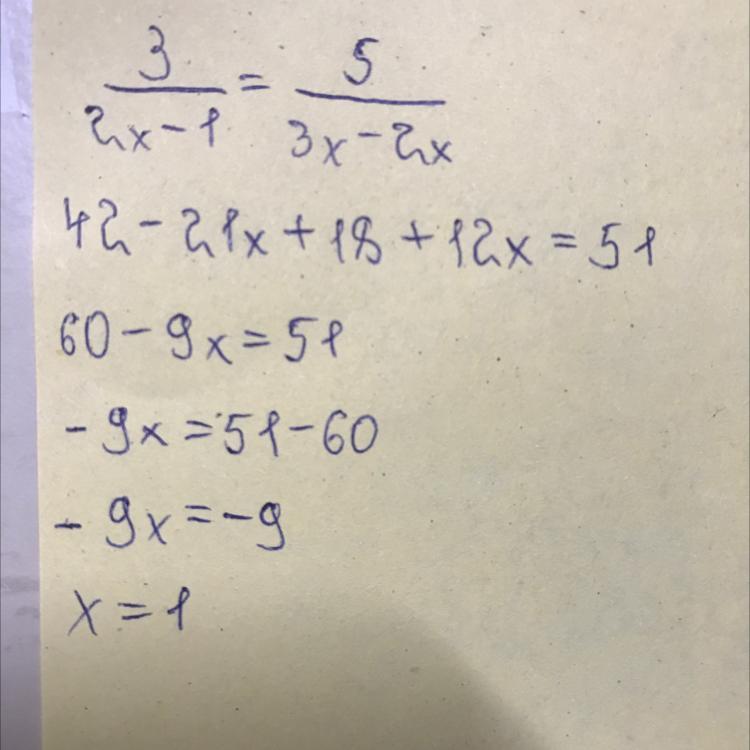 3/(2x-1) = 5/(3x-2x)
42-21x+18+12x=51
60-9x=51
-9x=51-60
-9x=-9
x=1